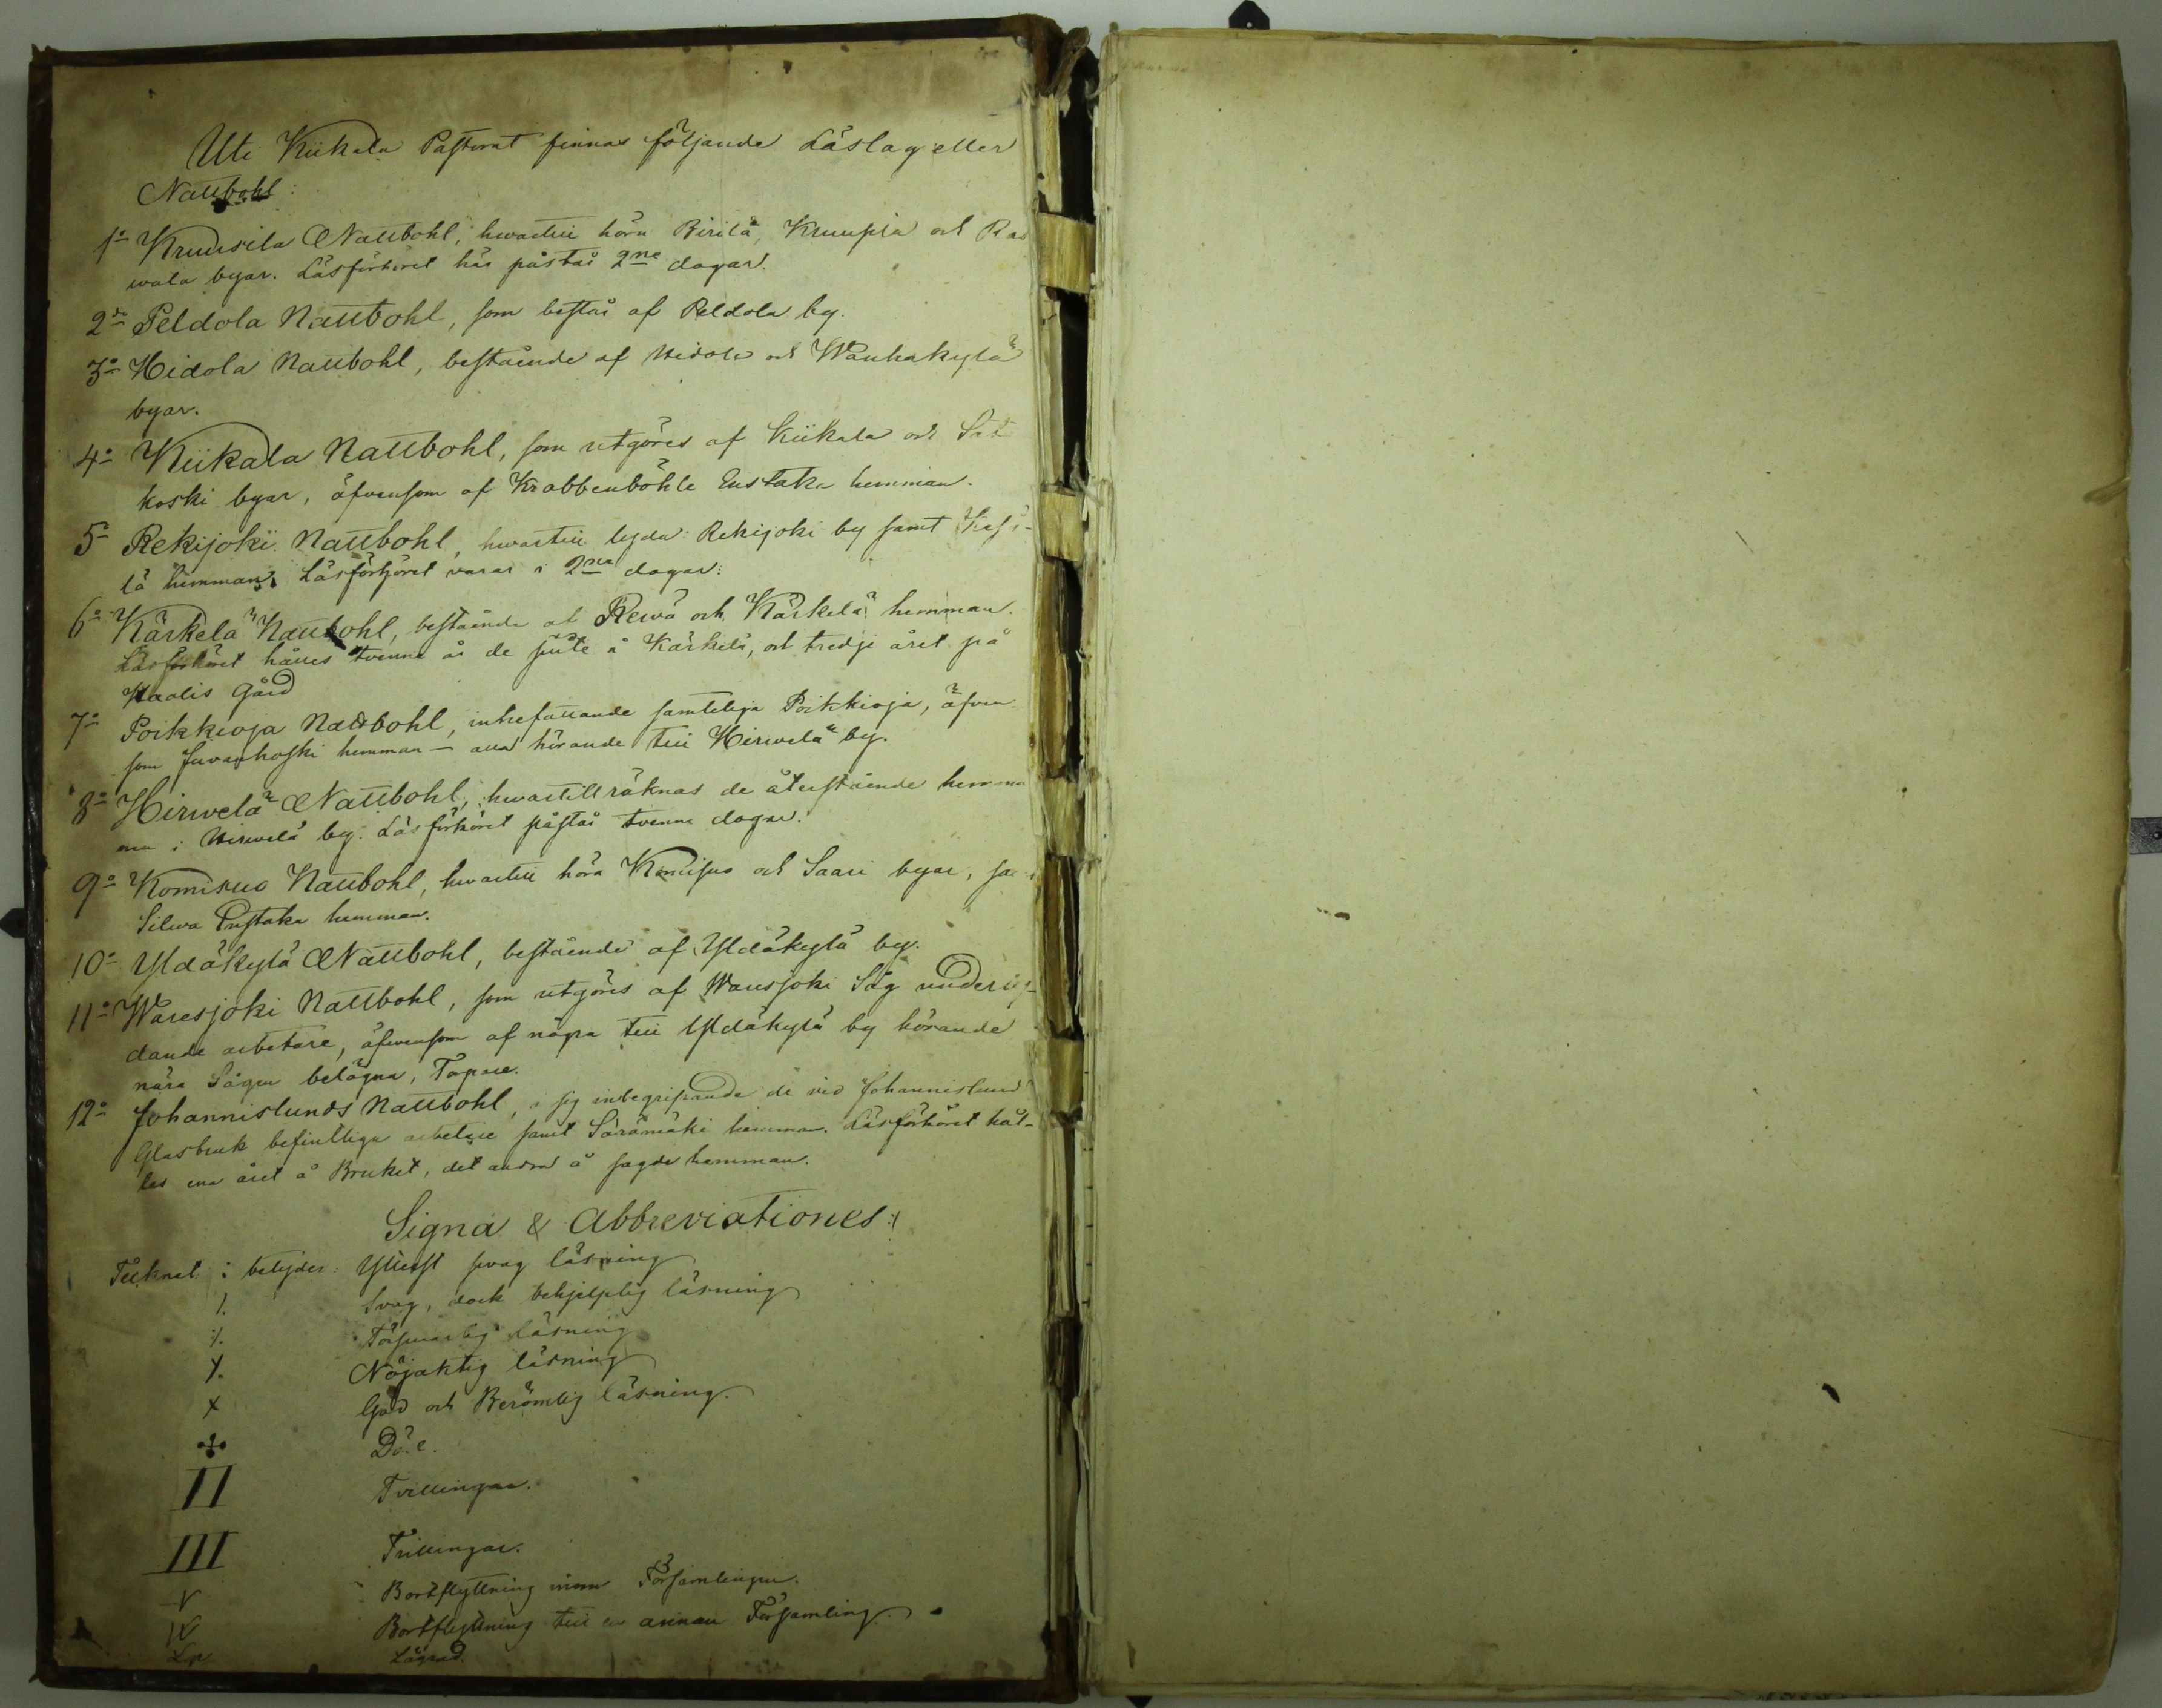 Uti Kiikala Pastorat finnas följande Läslag eller
Nattbohl:
1o Kruusila Nattbohl, hwartill höra Pirilä, Kruupia och Ra
wala byar. Läsförhöret här påstår 2ne dagar.
2o Peldola Nattbohl, som består af Peldola by.
3o Hidola Nattbohl, bestående af Hidola och Wanhakylä
byar.
4o Kiikala Nattbohl, som utgöres af Kiikala och
koski byar, äfvensom af Krabbenböhle Enstaka hemman.
5o Rekijoki Nattbohl, hwartill lyda Rekijoki by samt
lä hemman. Läsförhöret varar i 2ne dagar.
6o Kärkelä Nattbohl, bestående af Rewä och Kärkelä hemman.
Läsförhöret hålles tvenne år de å Kärkelä, och tredje året på
Gård
7o Poikkioja Nattbohl, inbefattande samteliga Poikkioja, äfven
som Juvankoski hemman — alla hörande till Hirwelä by.
8o Hirwelä Nattbohl, hwartill räknas de återstående hemma
nen i Hirwelä by. Läsförhöret påstår tvenne dagar.
9o Komisuo Nattbohl, hwartill höra Komisuo och Saari byar,
Silwa Enstaka hemman.
10o Yldäkylä Nattbohl, bestående af Yldäkylä by.
11o Waresjoki Nattbohl, som utgöres af Waresjoki Såg underly-
dande arbetare, äfwensom af några till Yldäkylä by hörande
nära Sågen belägna, Torpare.
12o Johannislunds Nattbohl, i sig inbegripande de vid Johannislund
Glasbruk befintliga arbetare samt Säränmäki hemman. Läsförhöret hål-
les ena året å Bruket, det andra å sagde hemman.
Signa & Abbreviationes:
Tecknet : betyder: Ytterst svag läsning
/. Svag, dock behjelplig läsning
:/. Försvarlig läsning
Y. Nöjaktig läsning
X God och Berömlig läsning.
Döde.
II Tvillingar.
III Trillingar.
V Bortflyttning inom Församlingen.
W Bortflyttning till en annan Församling.